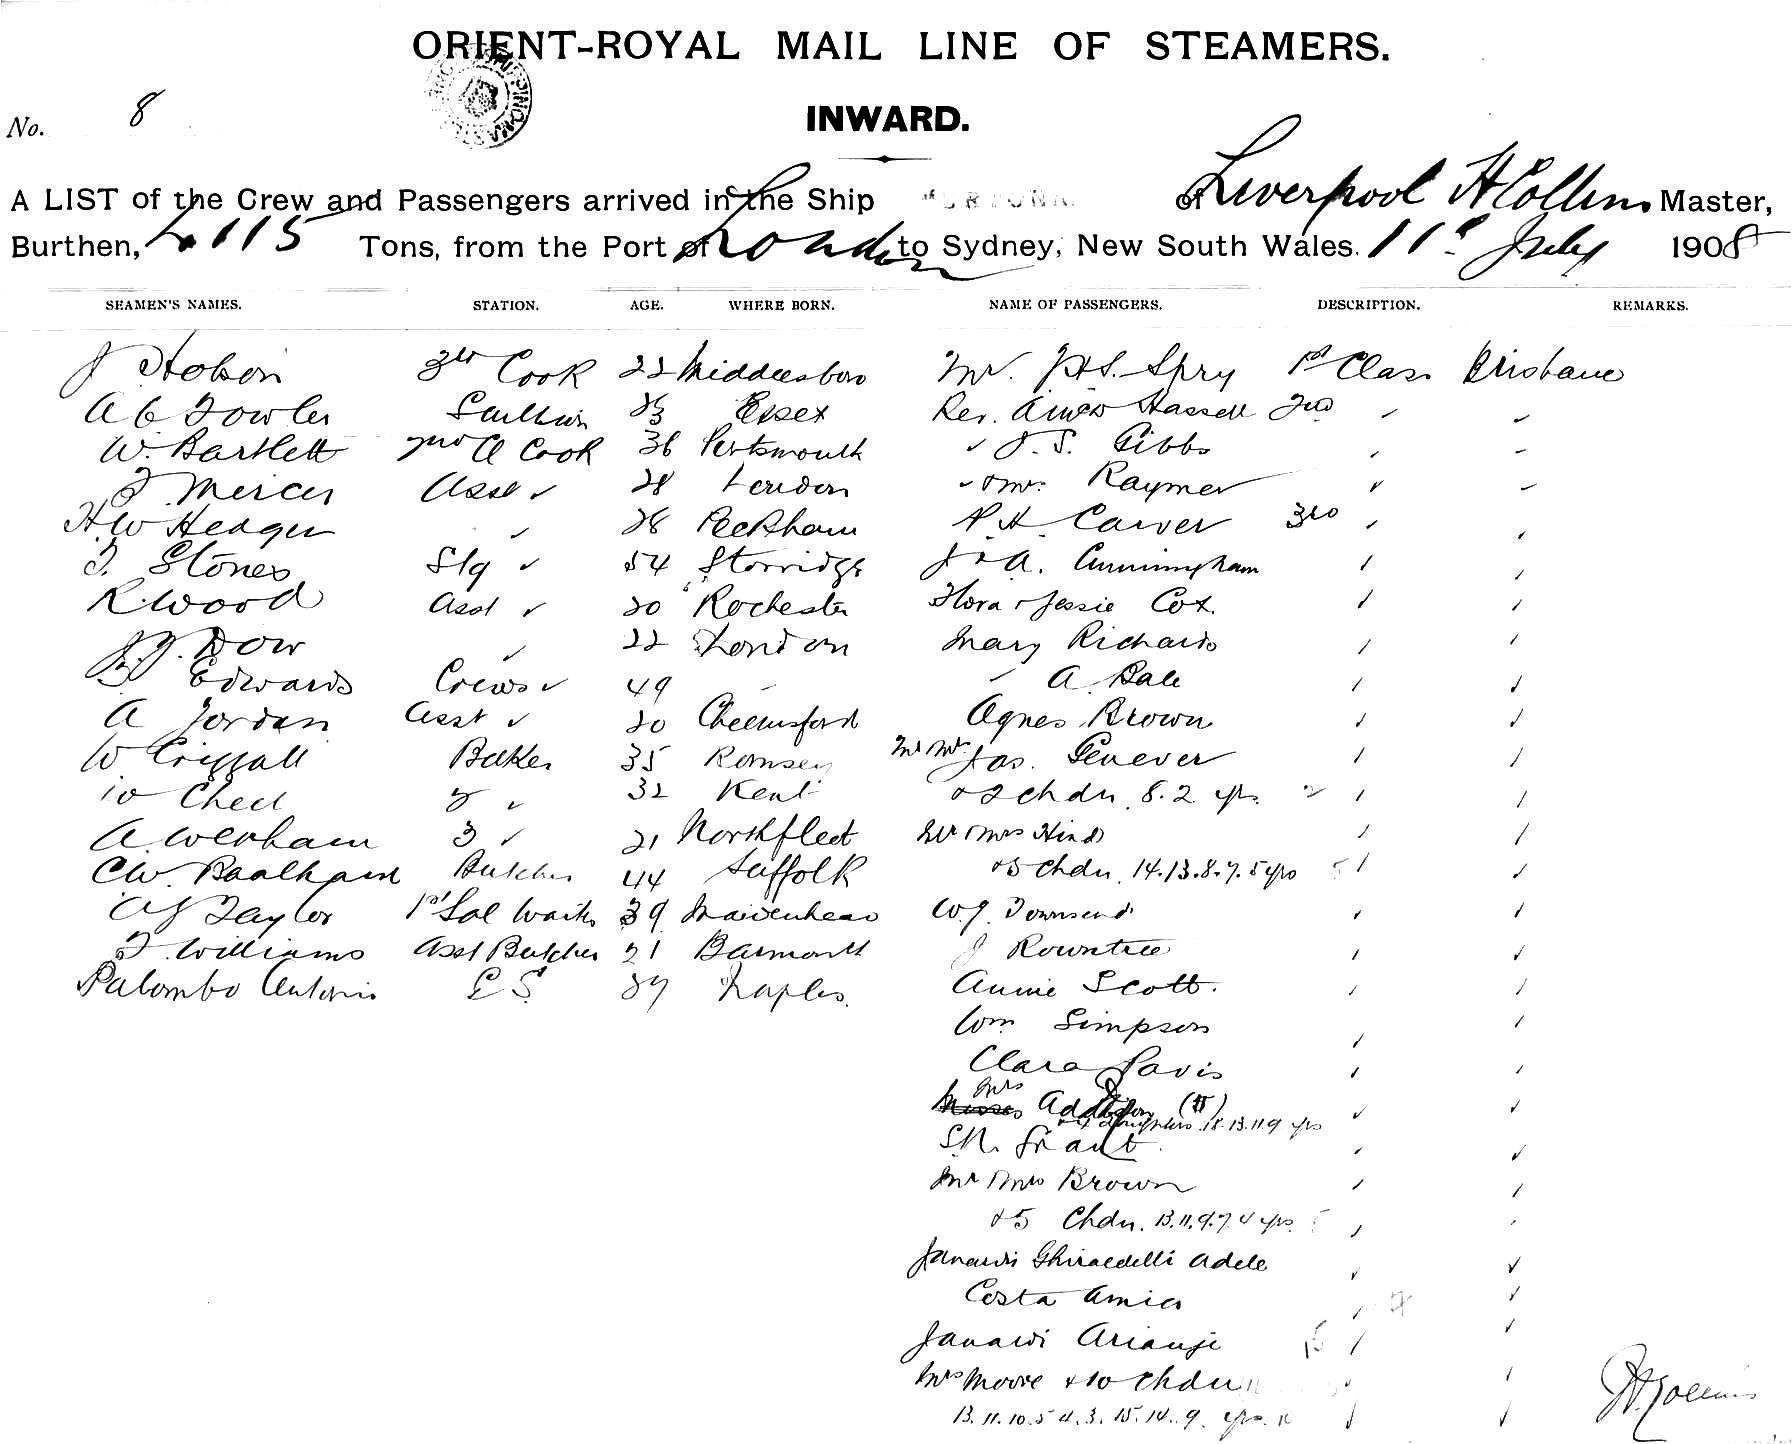 ORIENT-ROYAL MAIL LINE OF STEAMERS.
No. 8
INWARD.
A LIST of the Crew and Passengers arrived in the Ship of Liverpool H Collins Master,
Burthen, 4115 Tons, from the Port of London to Sydney, New South Wales. 11th July 1908
SEAMEN'S NAMES. STATION. AGE. WHERE BORN. NAME OF PASSENGERS. DESCRIPTION. REMARKS.
J Hobson 3rd Cook 22 Middlesboro Mr. Spry 1st Class Brisbane
A C Fowler Scullion 23 Essex Rev. Hassell 2nd
W. Bartlett Cook 36 Portsmouth J. S. Gibbs
Mercer Asst 28 London Raymer
H W Hedger 28 Peckham Carver 3rd
Stones Stg 54 Storridge J & A. Cunningham
R Wood Asst 20 Rochester Flora & Jessie Cox.
Dow 22 London Mary Richards
Edwards Crews 49 A Bale
A Jordan Asst 20 Chelmsford Agnes Brown
W Baker 35 Romsey Mr Mrs Jas. Genever
32 Kent & 2 chdn 8. 2 yrs. 2
A Wenham 3 21 Northfleet Mr Mrs Hinds
C W. Baalham Butcher 44 Suffolk & 5 Chdn. 14. 13. 8. 7. 5 yrs 5
A J Taylor 1st Sal Waiter 39 Maidenhead W. J. Townsend
Williams Asst Butcher 21 Barmouth J Rowntree
Palombo Antonio Naples. Annie Scott.
Wm Simpson
Clara Davis
Mrs
18. 13. 11. 9 yrs
Grant
Mr Mrs Brown
& 5 Chdn. 13. 11. 9. 7. 4 yrs. 5
Ghirardelli Adele
Costa
Mrs Moore & 10 Chdn
13. 11. 10. 5 4. 3. 15. 14. 9. yrs.
H. Collins